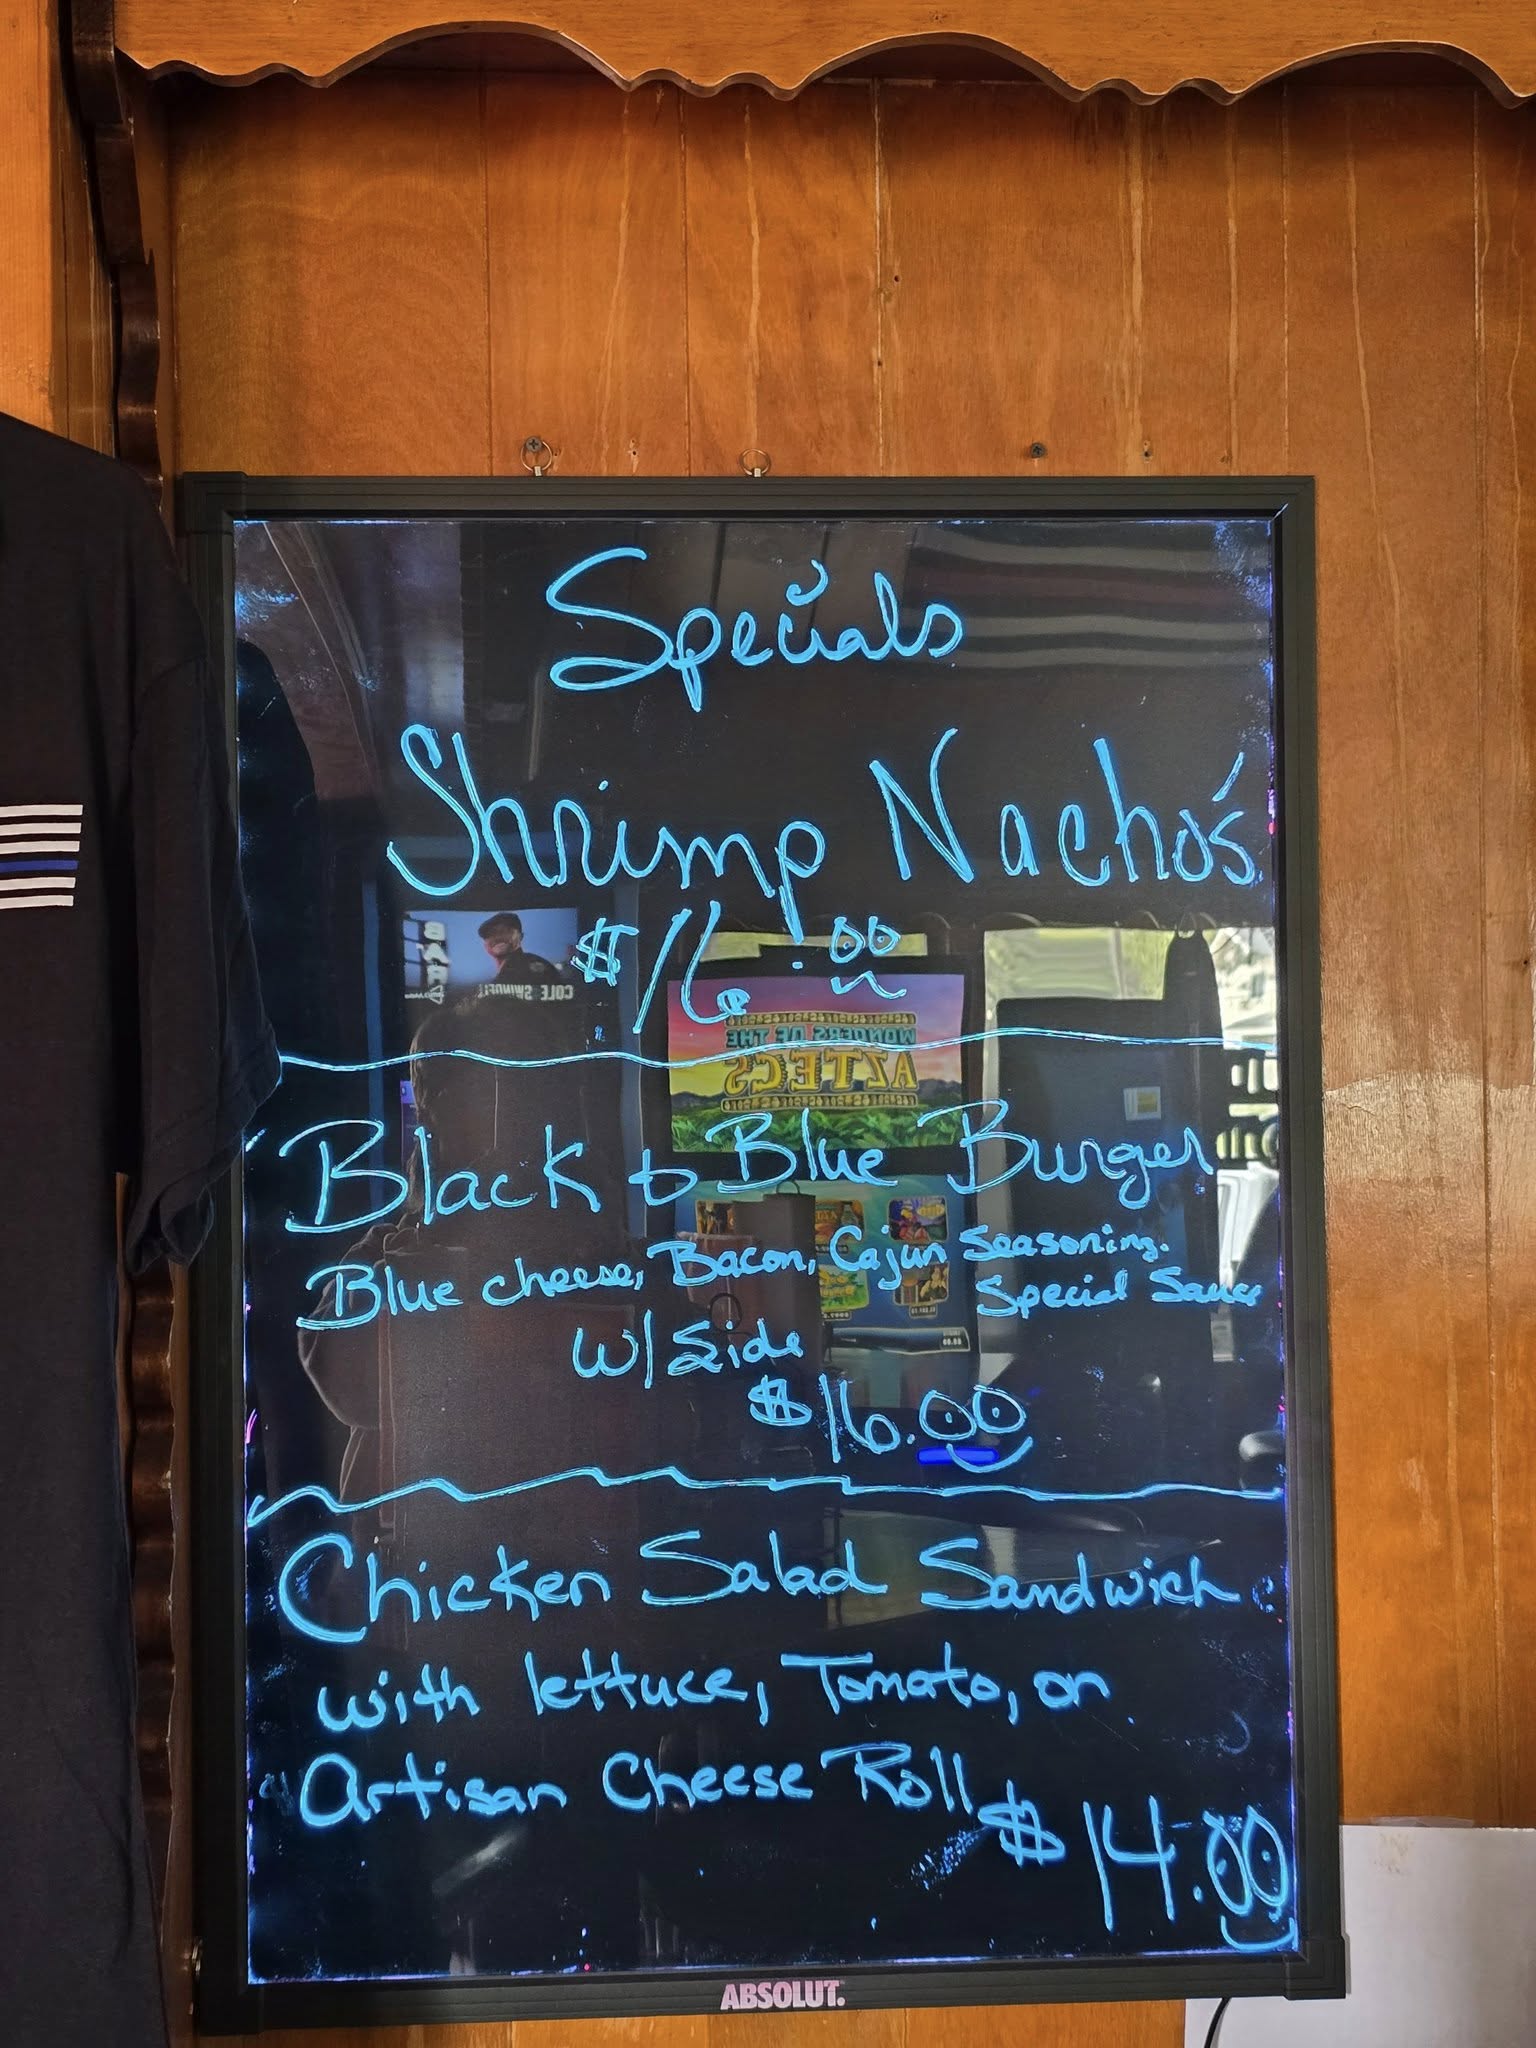 Specials
Shrimp Nacho's
$16.00
Black & Blue Burger
Blue cheese, Bacon, Cajun Seasoning.
Special Sauce
W/ Side
$16.00
Chicken Salad Sandwich
with lettuce, Tomato, on
Artisan Cheese Roll
$14.00
ABSOLUT.
BAR
COLE SWINDELL
WONDERS OF THE
AZTECS